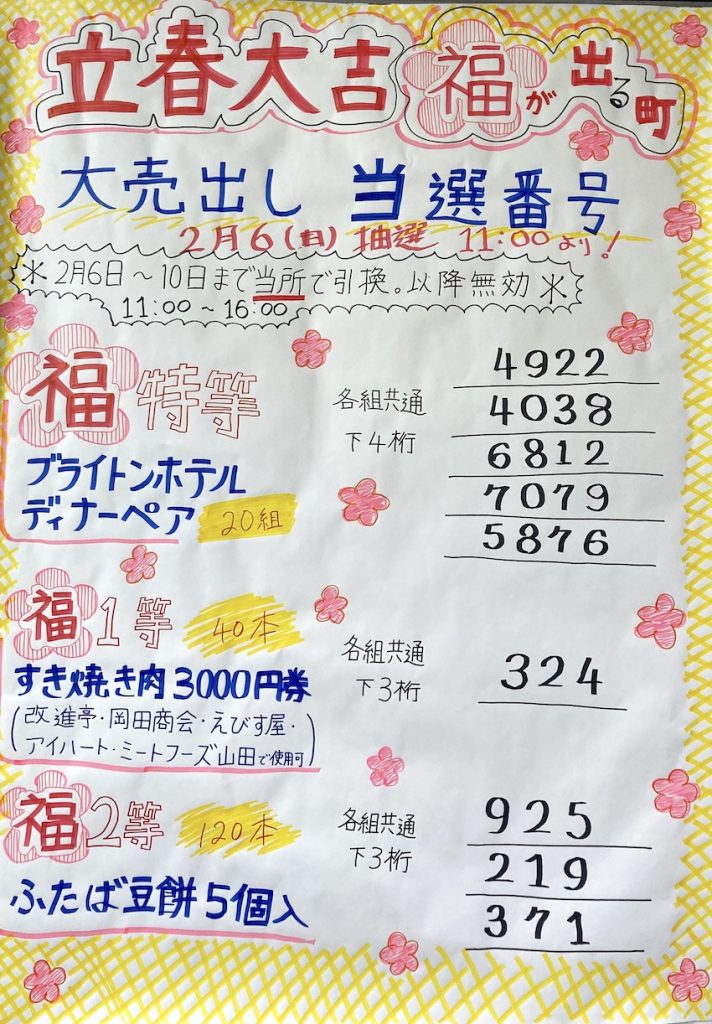 立春大吉 福が出る町
大売出し 当選番号
2月6(日) 抽選 11:00より!
*2月6日~10日まで当所で引換。以降無効*
11:00~16:00
福 特等
各組共通
下4桁
ブライトンホテル
ディナーペア 20組
4922
4038
6812
7079
5876
福 1等 40本
すき焼き肉3000円券
(改進亭・岡田商会・えびす屋・
アイハート・ミートフーズ山田で使用可)
各組共通
下3桁
324
福 2等 120本
ふたば豆餅5個入
各組共通
下3桁
925
219
371